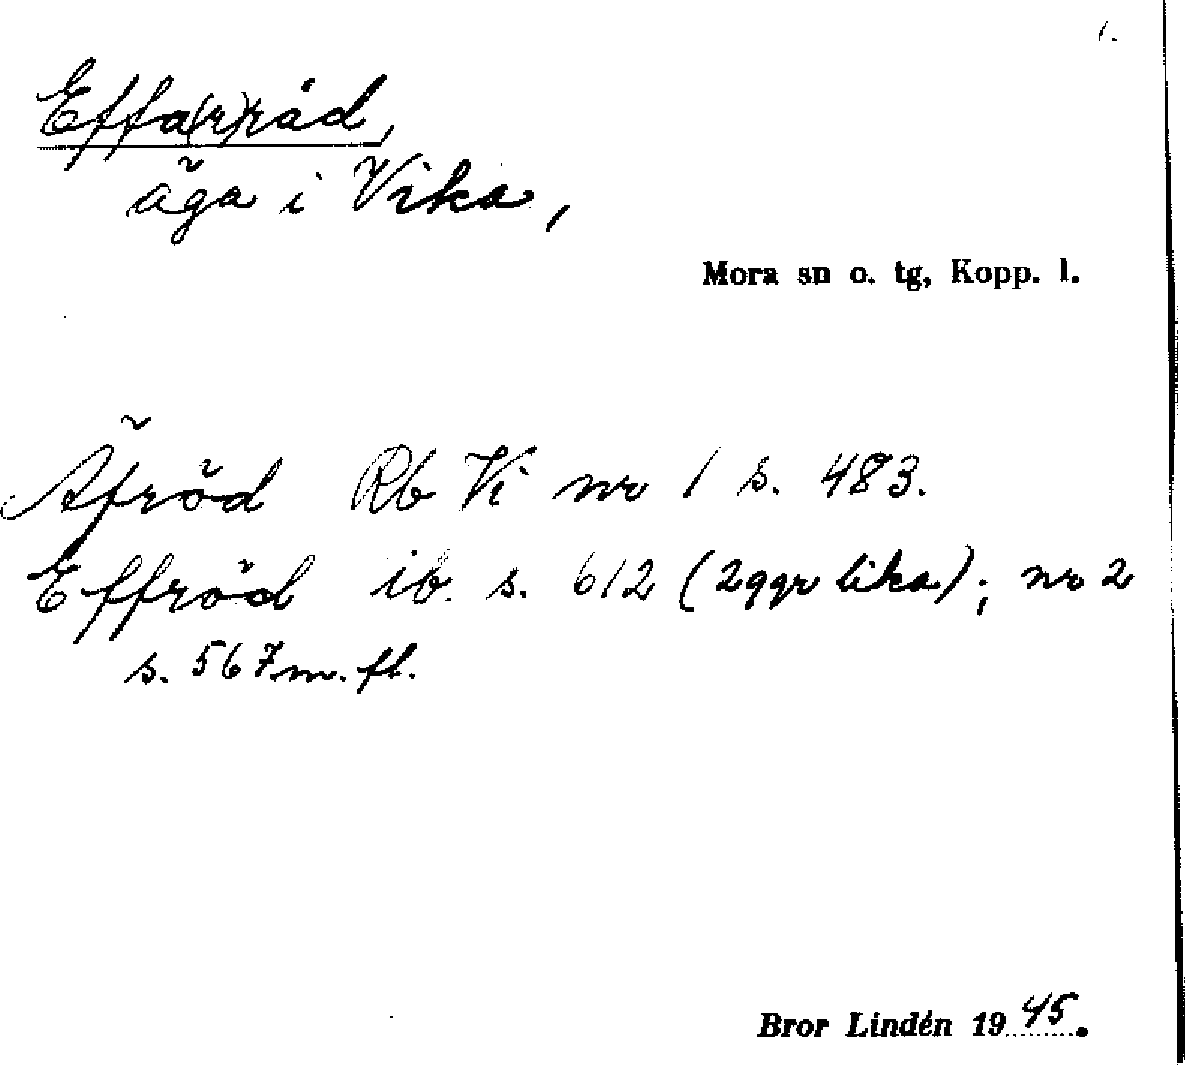 1.
Effa(r)råd,
äga i Vika,
Mora sn o. tg, Kopp. l.
Äfröd Rb Vi nr 1 s. 483.
Effröd ib. s. 612 (2 ggr lika); nr 2
s. 567 m. fl.
Bror Lindén 1945.